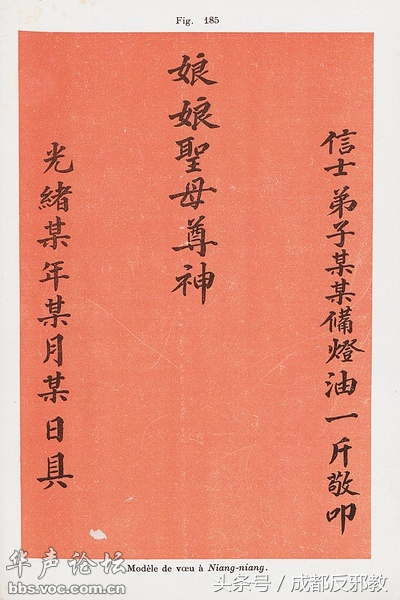 Fig. 185
信士弟子某某備燈油一斤敬叩
娘娘聖母尊神
光緒某年某月某日具
Modèle de vœu à Niang-niang.
华声论坛
bbs.voc.com.cn
头条号 / 成都反邪教